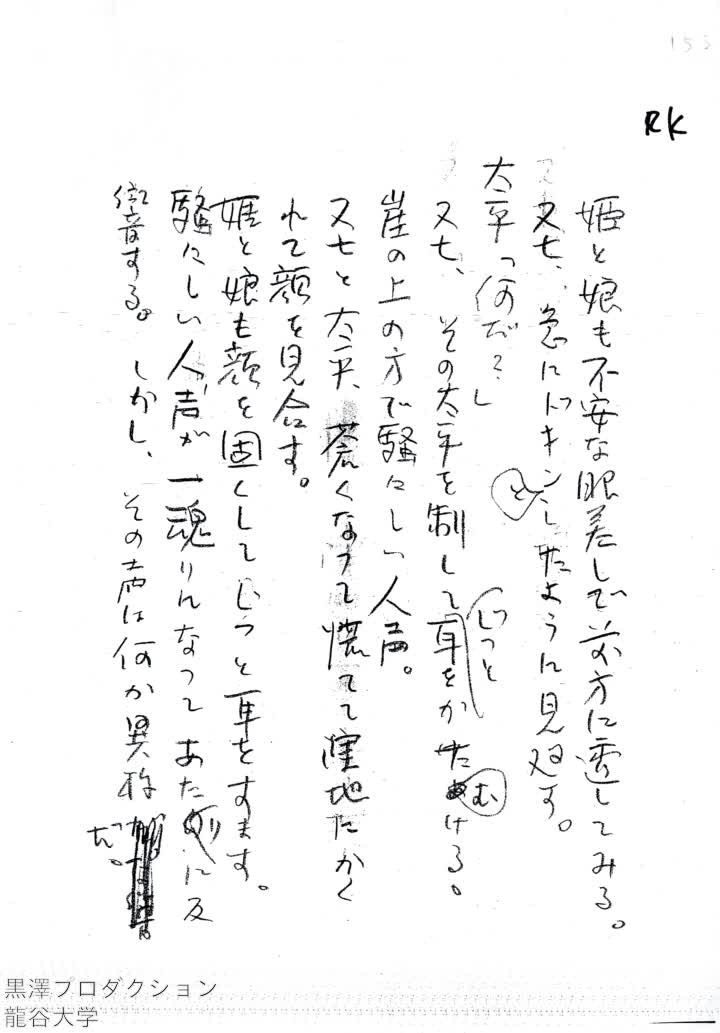 153
RK
姫と娘も不安な眼差しで前方に透してみる。
又七、急にドキンとしたように見返す。
太平「何だ?」
又七、その太平を制してじっと耳をかたむける。
崖の上の方で騒々しい人声。
又七と太平、蒼くなって慌てて窪地にかく
れて顔を見合す。
姫と娘も顔を固くしてじっと耳をすます。
騒々しい人声が一魂りになってあたりに反
響する。しかし、その声は何か異様だ。
黒澤プロダクション
龍谷大学